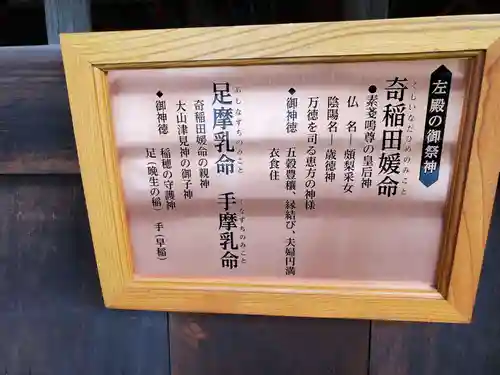 左殿の御祭神
奇稲田媛命
くしいなだひめのみこと
●素戔嗚尊の皇后神
仏　名―頗梨采女
陰陽名―歳徳神
万徳を司る恵方の神様
◆御神徳　五穀豊穣、縁結び、夫婦円満
衣食住
足摩乳命　手摩乳命
あしなずちのみこと　てなずちのみこと
奇稲田媛命の親神
大山津見神の御子神
◆御神徳　稲穂の守護神
足（晩生の稲）　手（早稲）